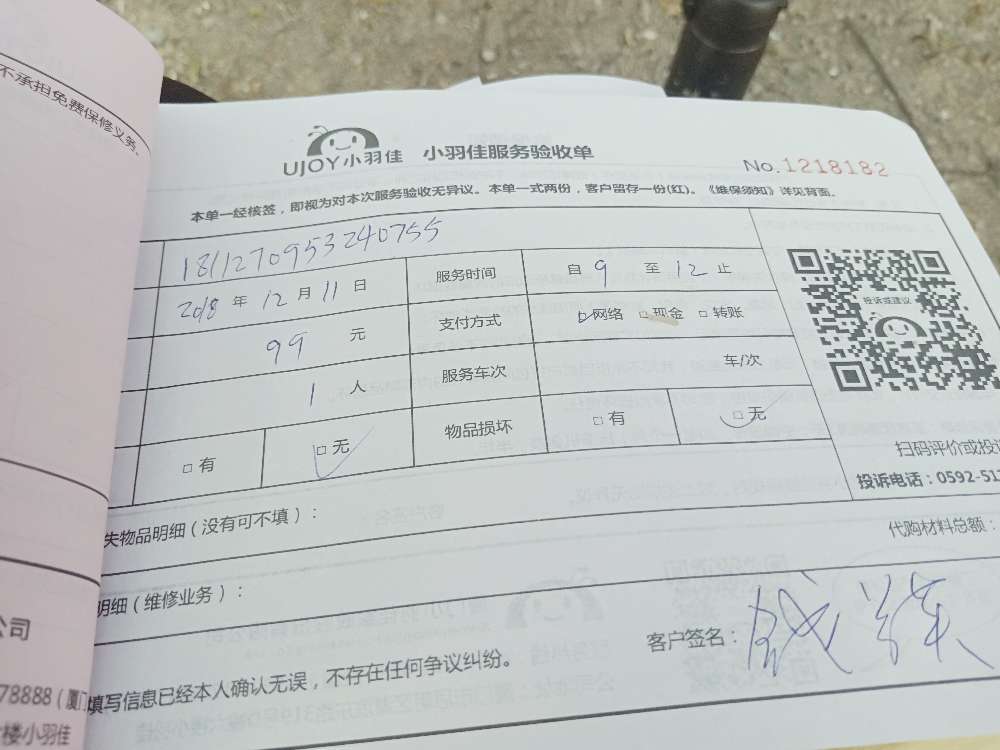 不承担免费保修义务。
UJOY小羽佳 小羽佳服务验收单
No.1218182
本单一经核签，即视为对本次服务验收无异议。本单一式两份，客户留存一份(红)。《维保须知》详见背面。
1811270953240755
服务时间 自 9 至 12 止
2018 年 12 月 11 日
支付方式 □网络 □现金 □转账
99 元
服务车次 车/次
1 人
□有 □无 物品损坏 □有 □无
投诉或建议
扫码评价或投诉
投诉电话：0592-51
失物品明细（没有可不填）：
代购材料总额：
明细（维修业务）：
客户签名：
填写信息已经本人确认无误，不存在任何争议纠纷。
公司
78888（厦门
楼小羽佳